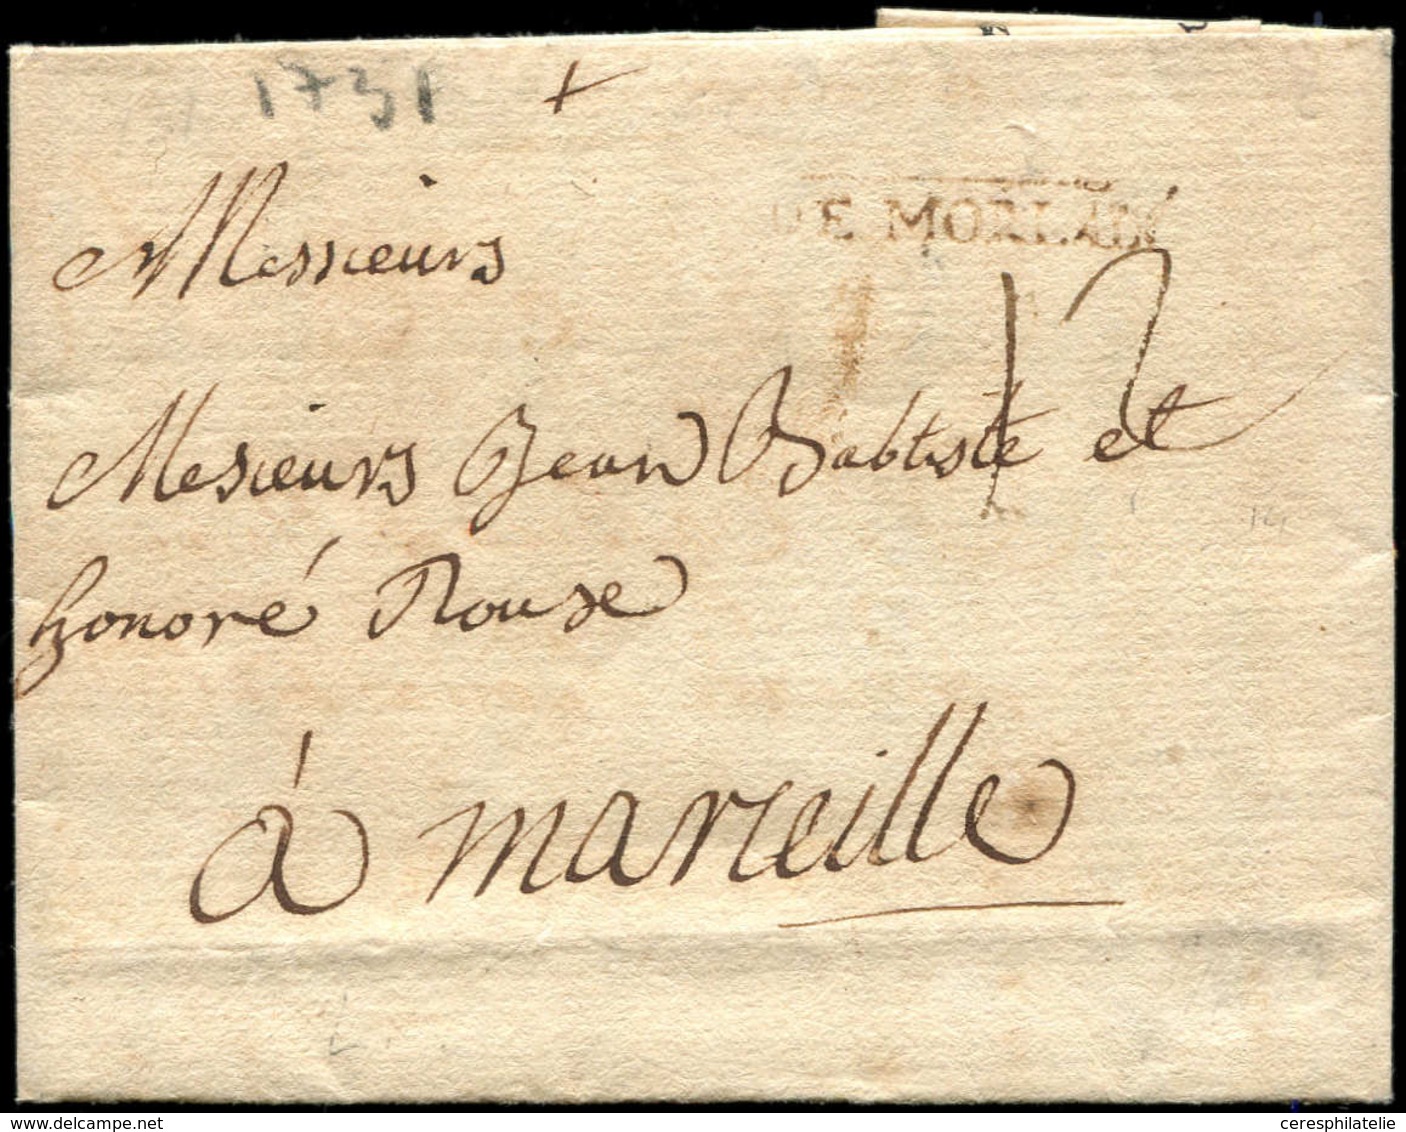 1731
DE MORLAIX
12
Messieurs
Mesieurs Jean Babtiste et
honoré Rouse
à marseille
ceresphilatelie.com